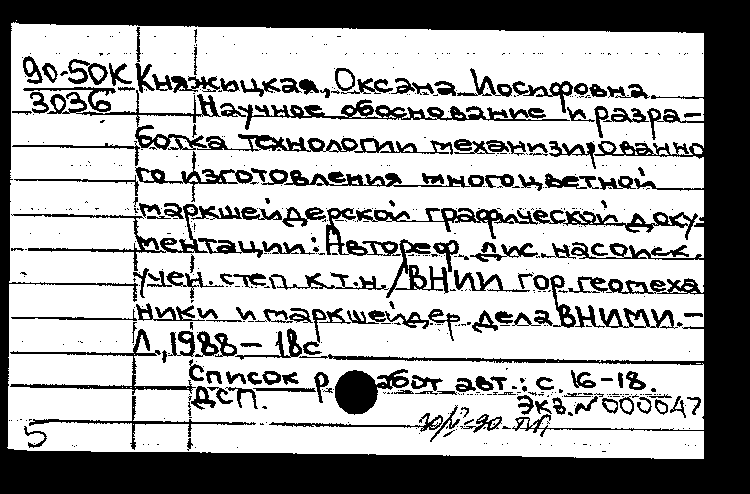 90-50К Княжицкая, Оксана Иосифовна.
3036 Научное обоснование и разра-
ботка технологии механизированно
го изготовления многоцветной
маркшейдерской графической доку-
ментации: Автореф. дис. на соиск.
учен. степ. к.т.н. / ВНИИ гор. геомеха
ники и маркшейдер. дела ВНИМИ. –
Л., 1988 – 18с
Список работ авт.: с. 16-18.
ДСП. Экз. № 000047
5